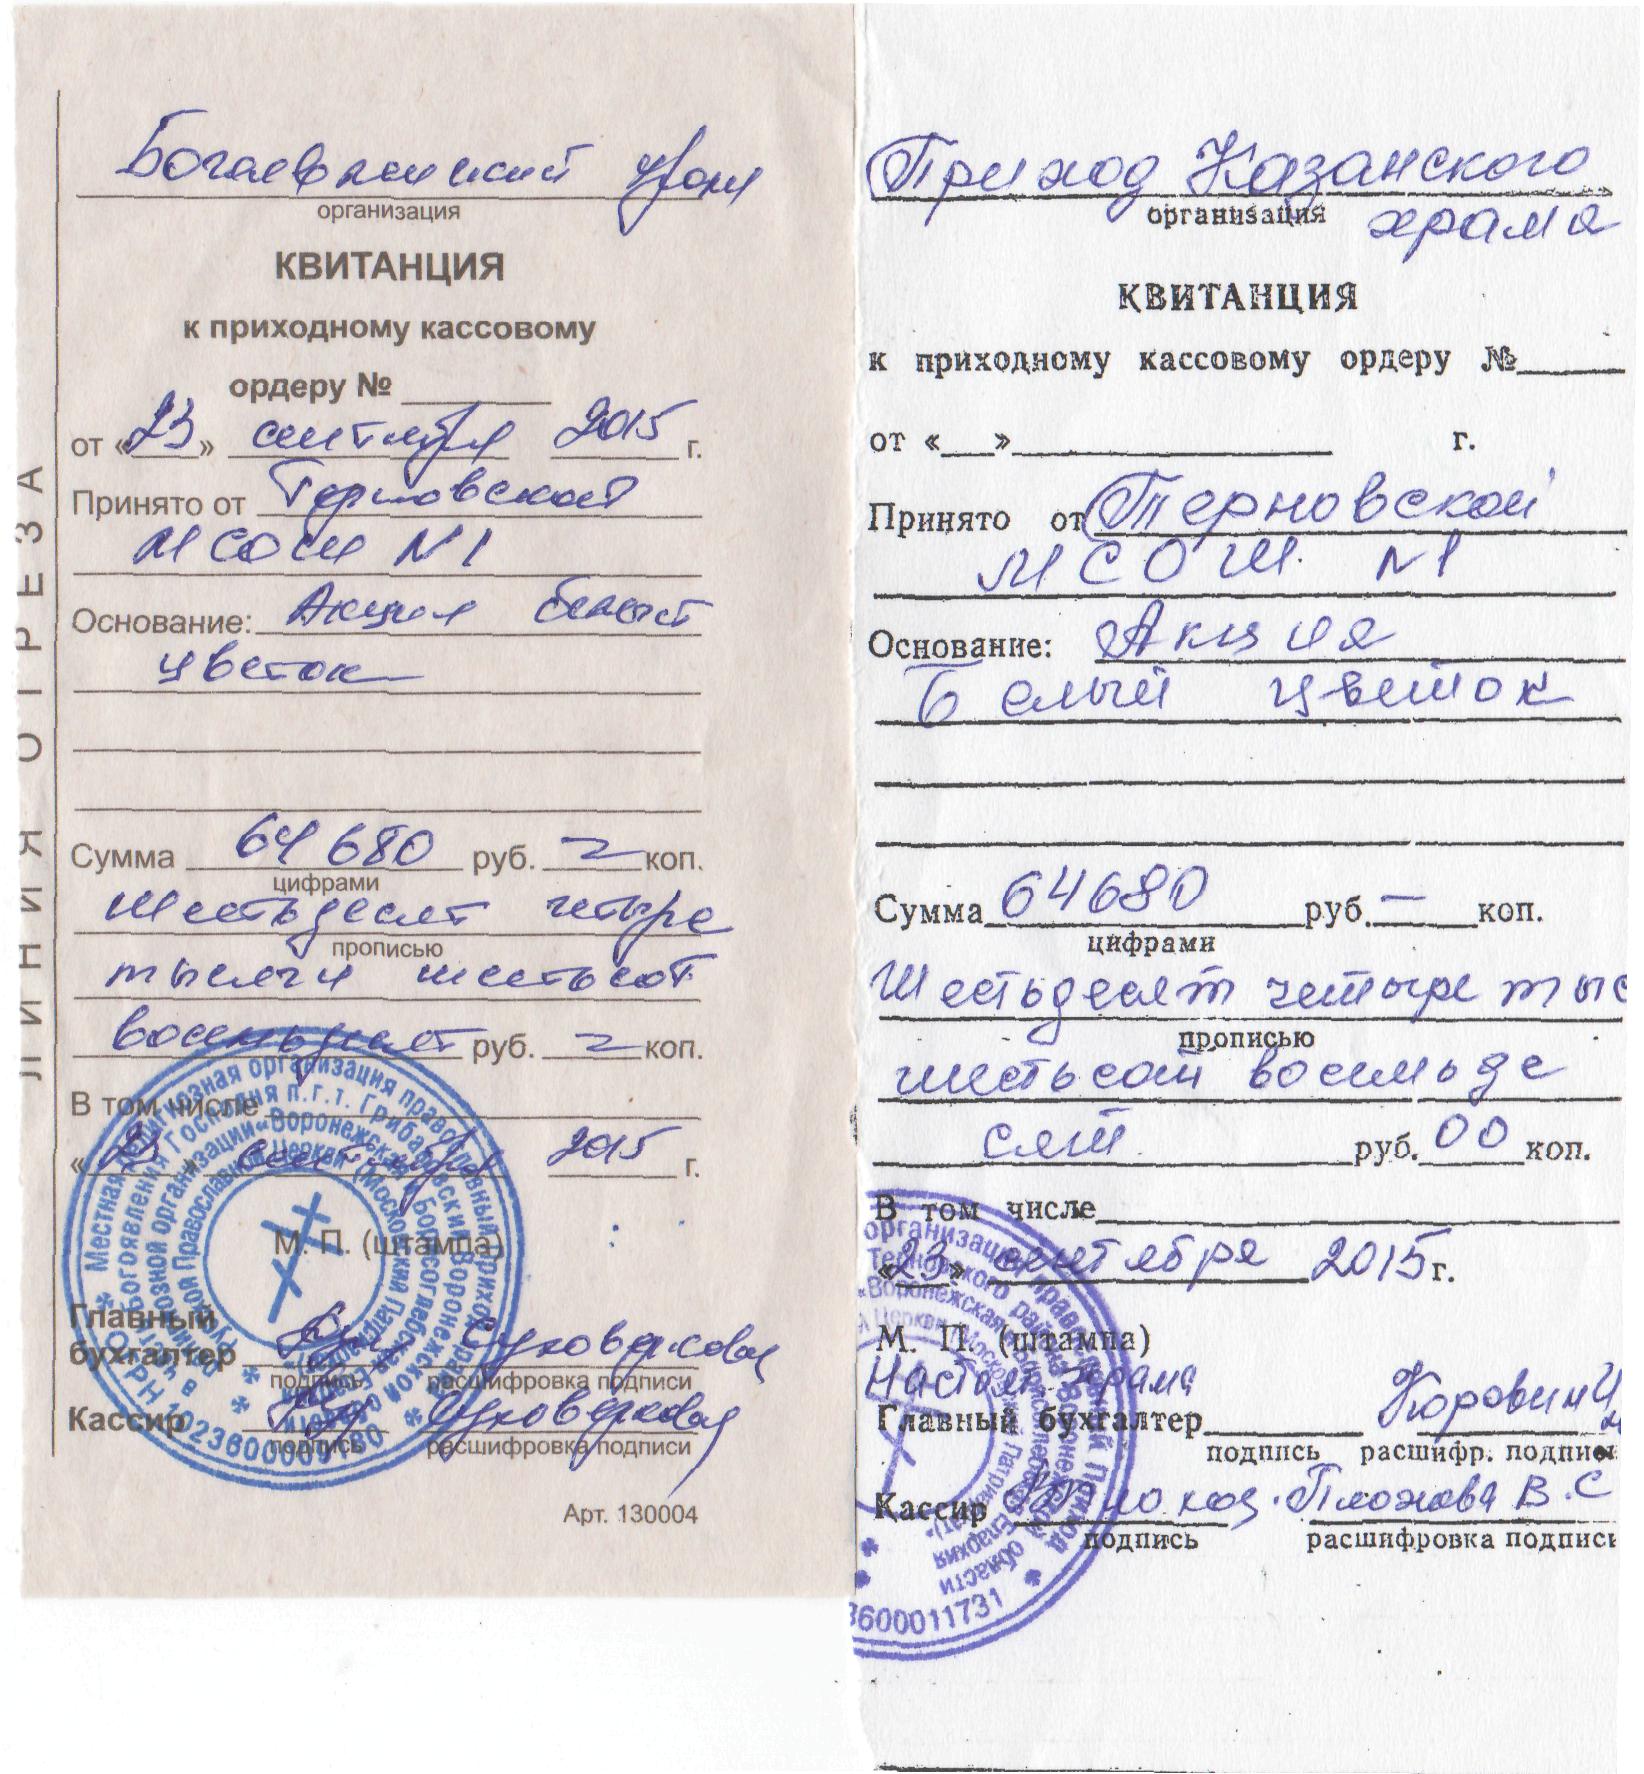 ЛИНИЯ ОТРЕЗА
Богоявленский храм
организация
КВИТАНЦИЯ
к приходному кассовому
ордеру №
от «23» сентября 2015 г.
Принято от Терновской
МСОШ №1
Основание: Акция белый
цветок
Сумма 64 680 руб. – коп.
цифрами
шестьдесят четыре
прописью
тысячи шестьсот
восемьдесят руб. – коп.
В том числе
«23» сентября 2015 г.
М. П. (штампа)
Главный
бухгалтер Суховеркова
подпись расшифровка подписи
Кассир Суховеркова
подпись расшифровка подписи
Арт. 130004
Местная религиозная организация православный приход
Богоявления Господня п.г.т. Грибановский Воронежской области
ОГРН 1023600009180
Приход Казанского
организация храма
КВИТАНЦИЯ
к приходному кассовому ордеру №
от « » г.
Принято от Терновской
МСОШ. №1
Основание: Акция
Белый цветок
Сумма 64680 руб. — коп.
цифрами
Шестьдесят четыре тыс
прописью
шестьсот восемьде
сят руб. 00 коп.
В том числе
«23» сентября 2015 г.
М. П. (штампа)
Настоят. храма
Главный бухгалтер Коровин
подпись расшифр. подписи
Кассир В.С
подпись расшифровка подписи
организация православный приход
Терновского района Воронежской области
3600011731